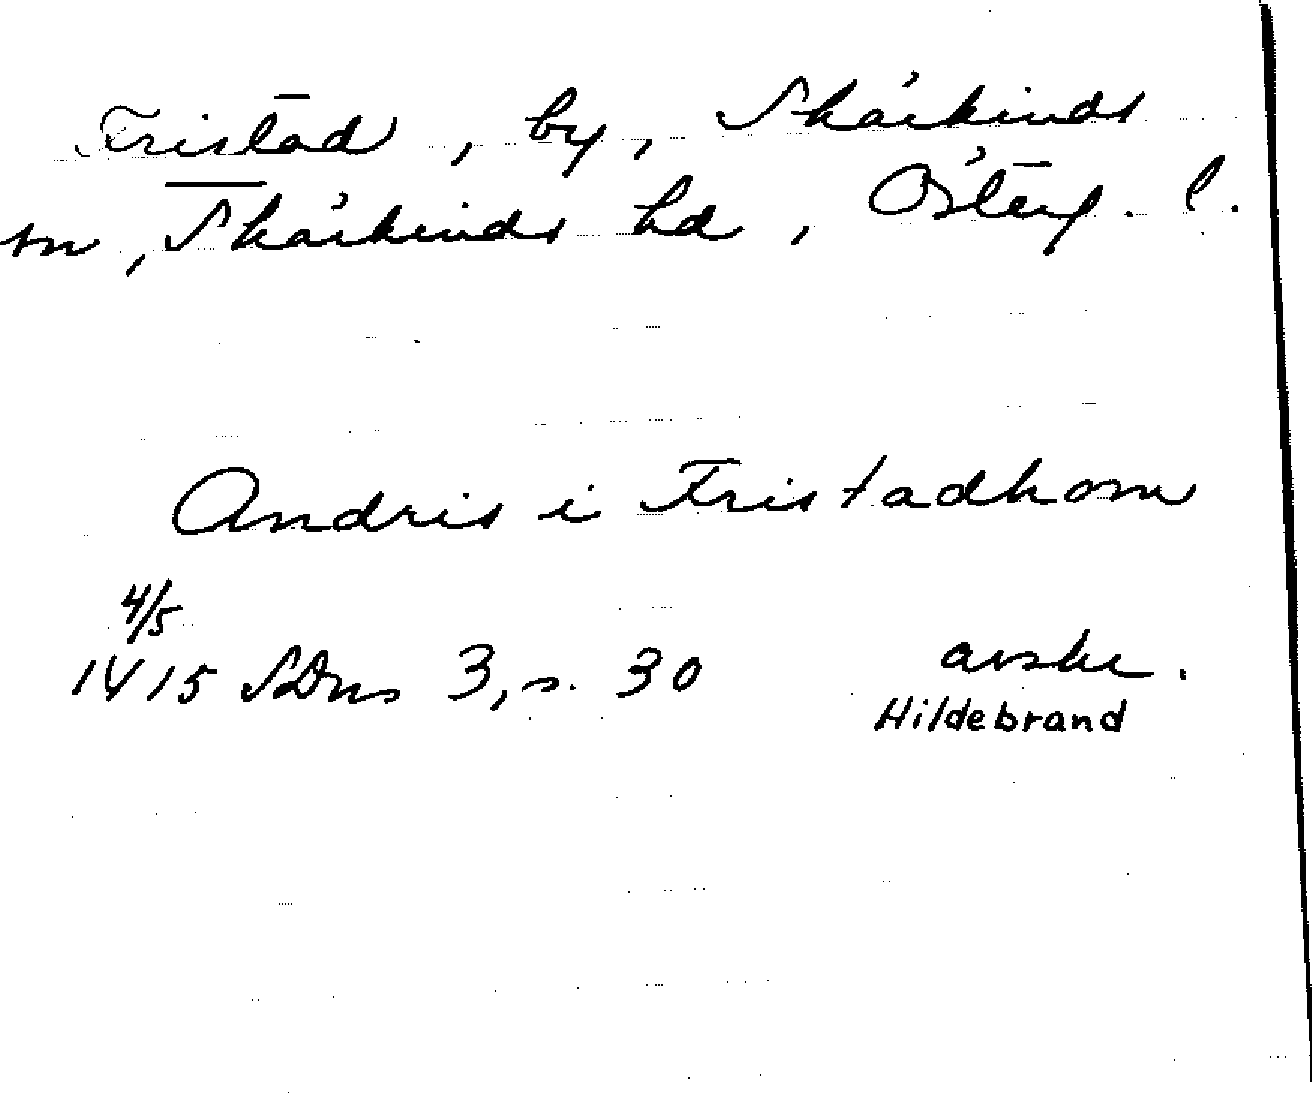 Fristad, by, Skärkinds
sn, Skärkinds hd, Österg. l.
Andris i Fristadhom
4/5
1415 SDns 3, s. 30 avskr.
Hildebrand